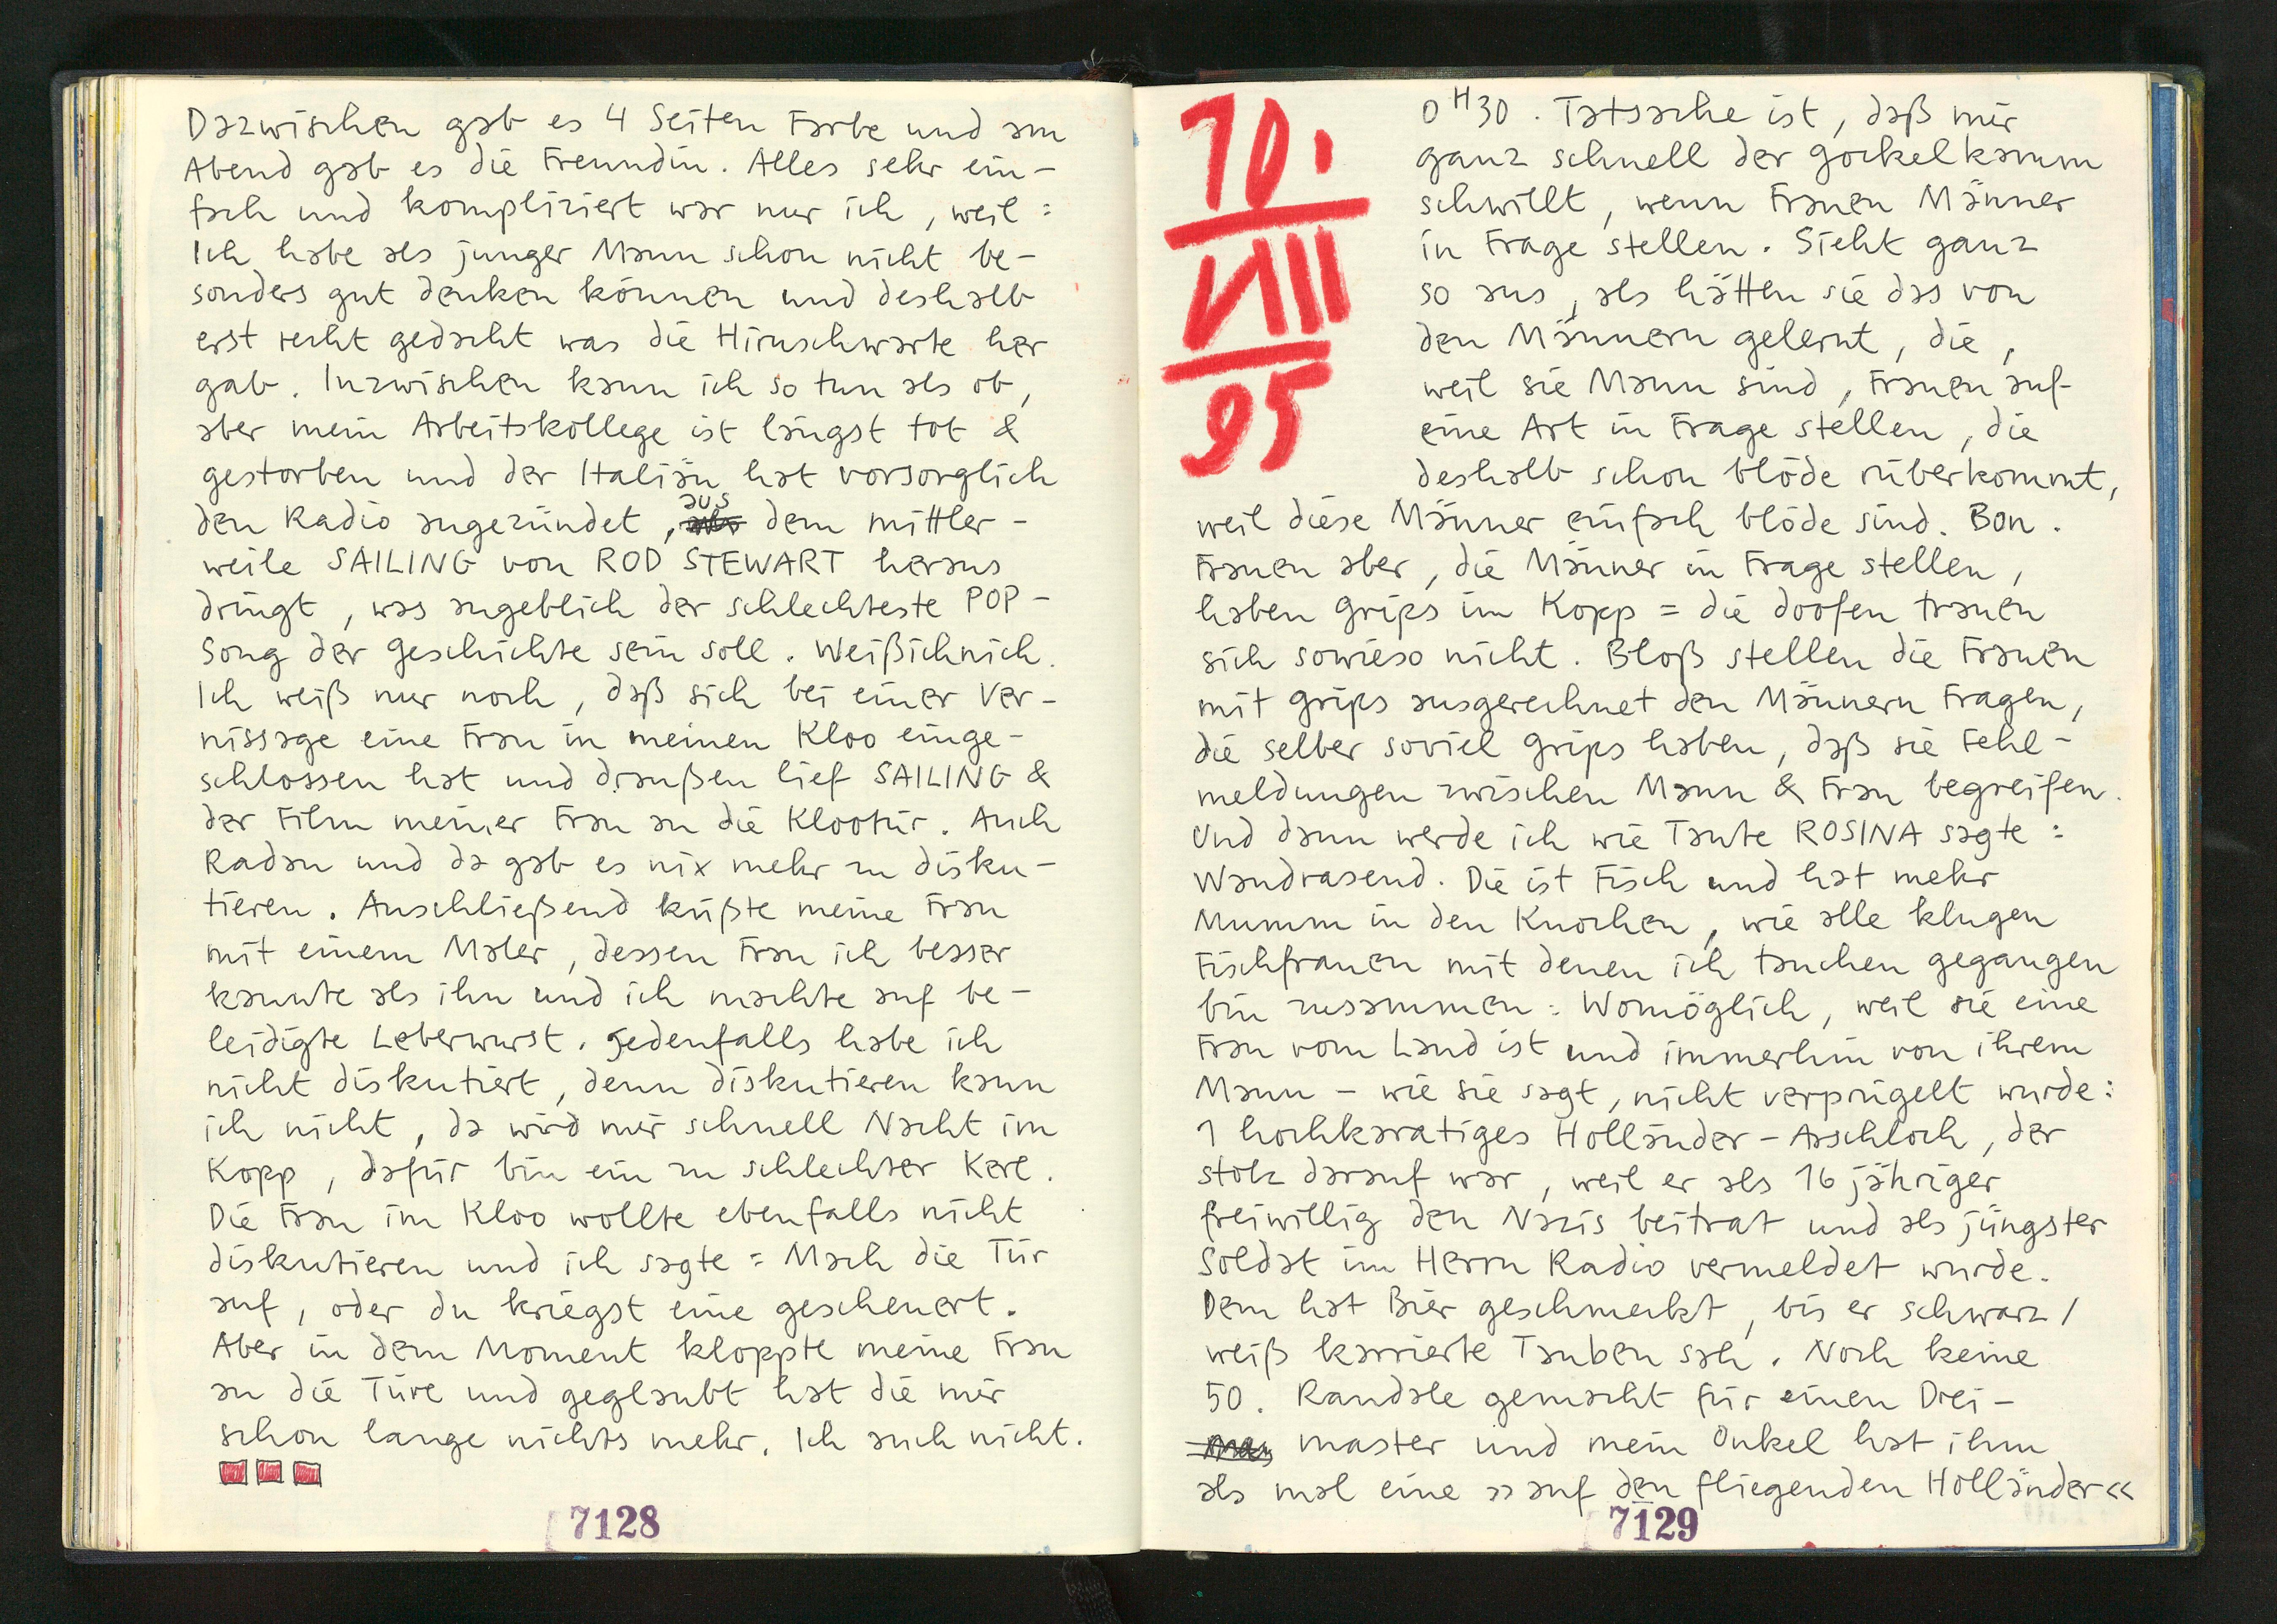 Dazwischen gab es 4 Seiten Farbe und am
Abend gab es die Freundin. Alles sehr ein-
fach und kompliziert war nur ich, weil:
Ich habe als junger Mann schon nicht be-
sonders gut denken können und deshalb
erst recht gedacht was die Hirnschwarte her
gab. Inzwischen kann ich so tun als ob,
aber mein Arbeitskollege ist längst tot &
gestorben und der Italiän hat vorsorglich
den Radio angezündet, aus dem mittler-
weile SAILING von ROD STEWART heraus
dringt, was angeblich der schlechteste POP-
Song der Geschichte sein soll. Weißichnich.
Ich weiß nur noch, daß sich bei einer Ver-
nissage eine Frau in meinen Kloo einge-
schlossen hat und draußen lief SAILING &
der Film meiner Frau an die Klootür. Auch
Radau und da gab es nix mehr zu disku-
tieren. Anschließend küßte meine Frau
mit einem Maler, dessen Frau ich besser
kannte als ihn und ich machte auf be-
leidigte Leberwurst. Jedenfalls habe ich
nicht diskutiert, denn diskutieren kann
ich nicht, da wird mir schnell Nacht im
Kopp, dafür bin ein zu schlechter Kerl.
Die Frau im Kloo wollte ebenfalls nicht
diskutieren und ich sagte: Mach die Tür
auf, oder du kriegst eine gescheuert.
Aber in dem Moment kloppte meine Frau
an die Türe und geglaubt hat die mir
schon lange nichts mehr. Ich auch nicht.
7128
10.
VIII
95
0H30. Tatsache ist, daß mir
ganz schnell der Gockelkamm
schwillt, wenn Frauen Männer
in Frage stellen. Sieht ganz
so aus, als hätten sie das von
den Männern gelernt, die,
weil sie Mann sind, Frauen auf
eine Art in Frage stellen, die
deshalb schon blöde rüberkommt,
weil diese Männer einfach blöde sind. Bon.
Frauen aber, die Männer in Frage stellen,
haben Grips im Kopp = die doofen trauen
sich sowieso nicht. Bloß stellen die Frauen
mit Grips ausgerechnet den Männern Fragen,
die selber soviel Grips haben, daß sie Fehl-
meldungen zwischen Mann & Frau begreifen.
Und dann werde ich wie Tante ROSINA sagte:
Wandrasend. Die ist Fisch und hat mehr
Mumm in den Knochen, wie alle klugen
Fischfrauen mit denen ich tauchen gegangen
bin zusammen: Womöglich, weil sie eine
Frau vom Land ist und immerhin von ihrem
Mann - wie sie sagt, nicht verprügelt wurde:
1 hochkaratiges Holländer-Arschloch, der
stolz darauf war, weil er als 16 jähriger
freiwillig den Nazis beitrat und als jüngster
Soldat im Herrn Radio vermeldet wurde.
Dem hat Bier geschmeckt, bis er schwarz/
weiß karrierte Tauben sah. Noch keine
50. Randale gemacht für einen Drei-
master und mein Onkel hat ihm
als mal eine »auf den fliegenden Holländer«
7129